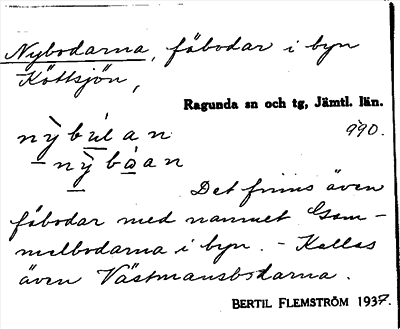 Nybodarna, fäbodar i byn
Köttsjön,
Ragunda sn och tg, Jämtl. län.
990.
nỳbúlan
– nỳbåan
Det finns även
fäbodar med namnet Gam-
melbodarna i byn. – Kallas
även Västmansbodarna.
BERTIL FLEMSTRÖM 1937.